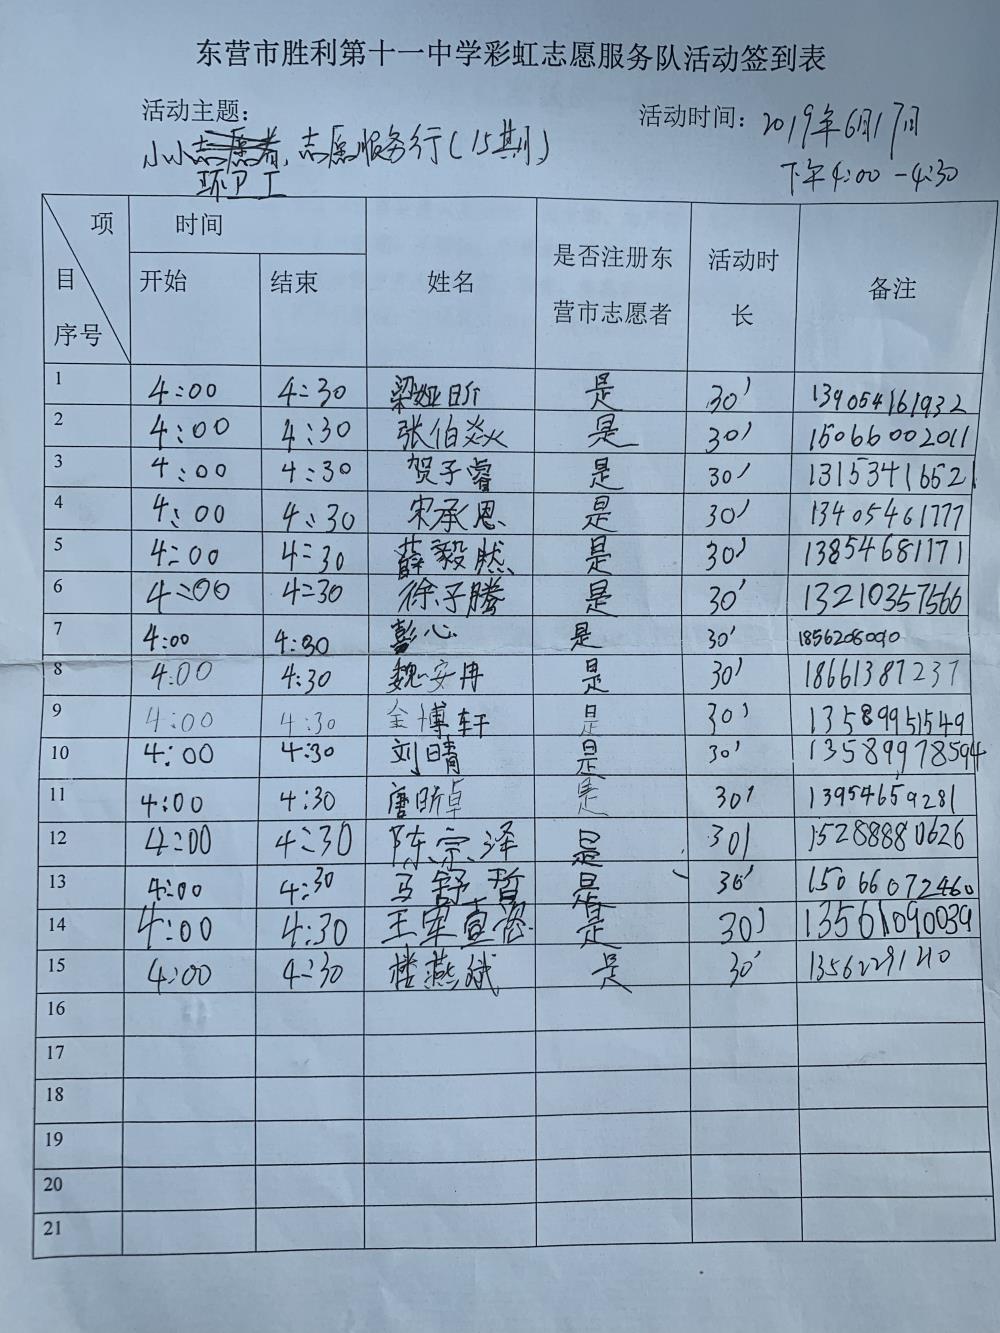 东营市胜利第十一中学彩虹志愿服务队活动签到表
活动主题: 活动时间: 2019年6月17日
小小志愿者,志愿服务行(15期)
环卫工
下午4:00-4:30
项 时间
目 开始 结束 姓名 是否注册东营市志愿者 活动时长 备注
序号
1 4:00 4:30 梁娅昕 是 30' 139054161932
2 4:00 4:30 张伯焱 是 30' 15066002011
3 4:00 4:30 贺子睿 是 30' 13153416521
4 4:00 4:30 宋承恩 是 30' 13405461777
5 4:00 4:30 薛毅然 是 30' 13854681171
6 4:00 4:30 徐子腾 是 30' 13210357566
7 4:00 4:30 彭心 是 30' 1856208090
8 4:00 4:30 魏安冉 是 30' 18661387237
9 4:00 4:30 金博轩 是 30' 13589951549
10 4:00 4:30 刘晴 是 30' 13589978594
11 4:00 4:30 唐昕卓 是 30' 13954659281
12 4:00 4:30 陈宗泽 是 30' 15288880626
13 4:00 4:30 马舒哲 是 30' 15066072460
14 4:00 4:30 王军 是 30' 13561090039
15 4:00 4:30 楼燕斌 是 30'
16
17
18
19
20
21